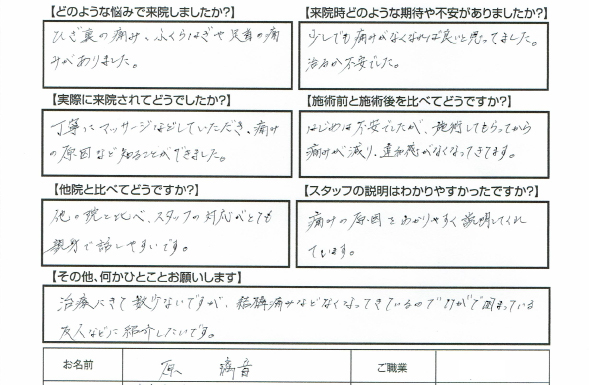 【どのような悩みで来院しましたか?】
ひざ裏の痛み、ふくらはぎや足首の痛
みがありました。
【来院時どのような期待や不安がありましたか?】
少しでも痛みがなくなれば良いと思ってました。
治るか不安でした。
【実際に来院されてどうでしたか?】
丁寧にマッサージなどしていただき、痛み
の原因など知ることができました。
【施術前と施術後を比べてどうですか?】
はじめは不安でしたが、施術してもらってから
痛みが減り、違和感がなくなってきてます。
【他院と比べてどうですか?】
他の院と比べ、スタッフの対応がとても
親身で話しやすいです。
【スタッフの説明はわかりやすかったですか?】
痛みの原因をわかりやすく説明してくれ
ています。
【その他、何かひとことお願いします】
治療にきて数少ないですが、結構痛みなどなくなってきているので ケガで困っている
友人などに紹介したいです。
お名前
原
音
ご職業